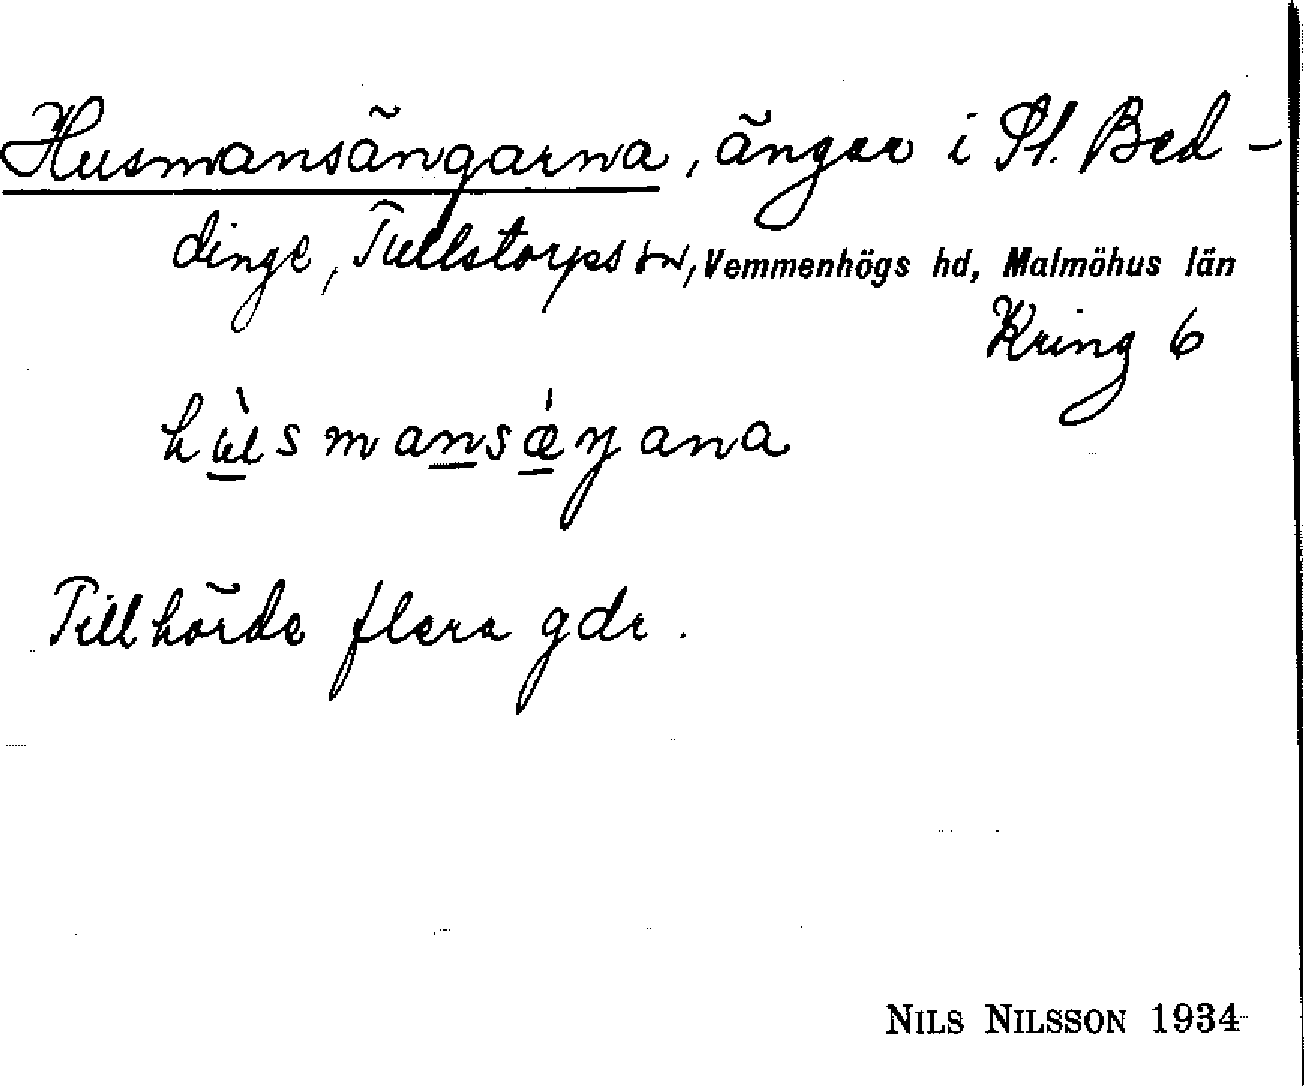 Husmansängarna, ängar i St. Bed-
dinge, Tullstorps sn, Vemmenhögs hd, Malmöhus län
Kring 6
hùsmansǽŋana
Tillhörde flera gdr.
NILS NILSSON 1934